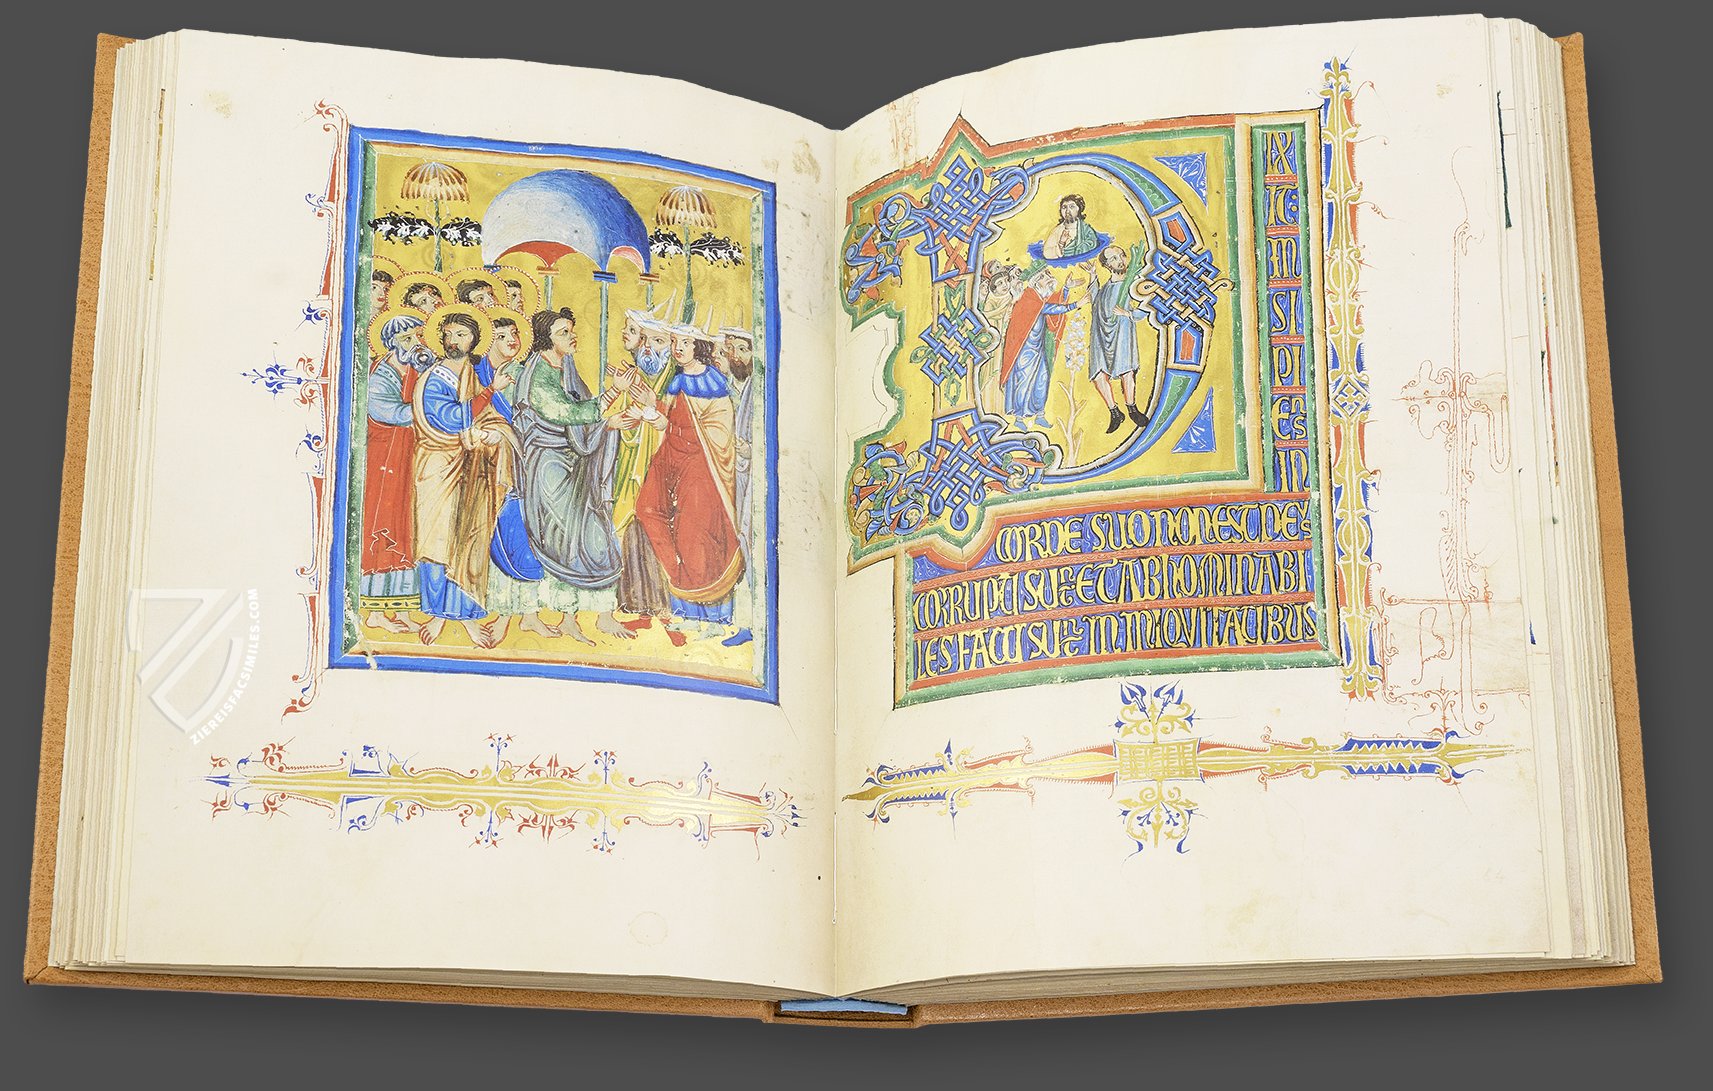 D
IX
IT:
IN
SI
PI
ENS
IN
CORDE SUO NON EST DEUS
CORRUPTI SUNT ET ABHOMINABI
LES FACTI SUNT IN
ZIEREISFACSIMILES.COM